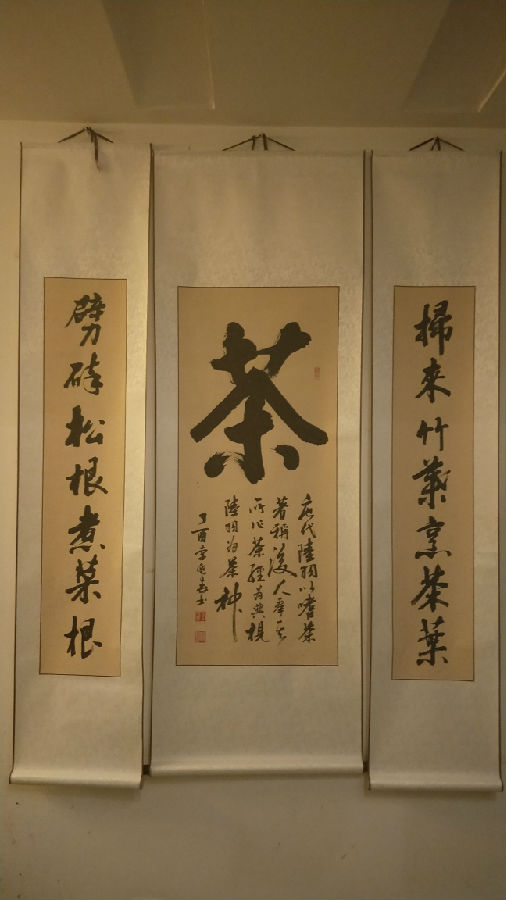 掃來竹葉烹茶葉
茶
唐代陸羽以嗜茶
著稱後人奉其
所作茶經為典規
陸羽為茶神
丁酉
劈碎松根煮菜根